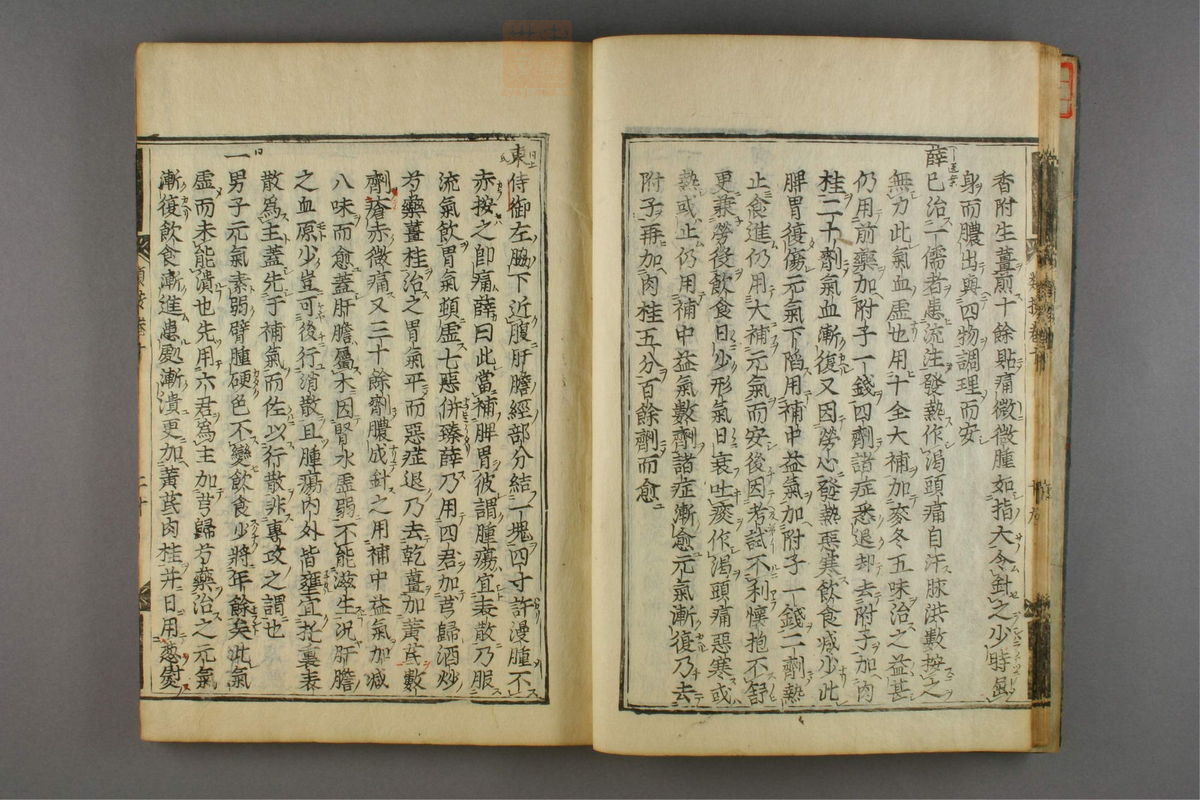 香附生薑煎十餘貼痛微微腫如指大令針之少時氣
身而膿出與四物調理而安
薛已治一儒者患流注發熱作渴頭痛自汗脉洪數按之
無力此氣血虛也用十全大補加麥冬五味治之益甚
仍用前藥加附子一錢四劑諸症悉退却去附子加肉
桂二十劑氣血漸復又因勞心發熱惡寒飲食減少此
脾胃復傷元氣下陷用補中益氣加附子一錢二劑熱
止食進仍用大補元氣而安後因考試不利懷抱不舒
更兼勞役飲食日少形氣日衰吐痰作渴頭痛惡寒或
熱或止仍用補中益氣數劑諸症漸愈元氣漸復乃去
附子再加肉桂五分百餘劑而愈
東侍御左脇下近腹肝膽經部分結一塊四寸許漫腫不
赤按之卽痛薛曰此當補脾胃彼謂腫瘍宜表散乃服
流氣飲胃氣頓虛七惡併臻薛乃用四君加芎歸酒炒
芍藥薑桂治之胃氣平而惡症退乃去乾薑加黃芪數
劑瘡赤微痛又三十餘劑膿成針之用補中益氣加減
八味而愈蓋肝膽屬木因腎水虛弱不能滋生況肝膽
之血原少豈可後行消散且腫瘍內外皆壅宜托裏表
散為主蓋先于補氣而佐以行散非專攻之謂也
一男子元氣素弱臂腫硬色不變飲食少將年餘矣此氣
虛而未能潰也先用六君為主加芎歸芍藥治之元氣
漸復飲食漸進患處漸潰更加黃芪肉桂并日用葱熨